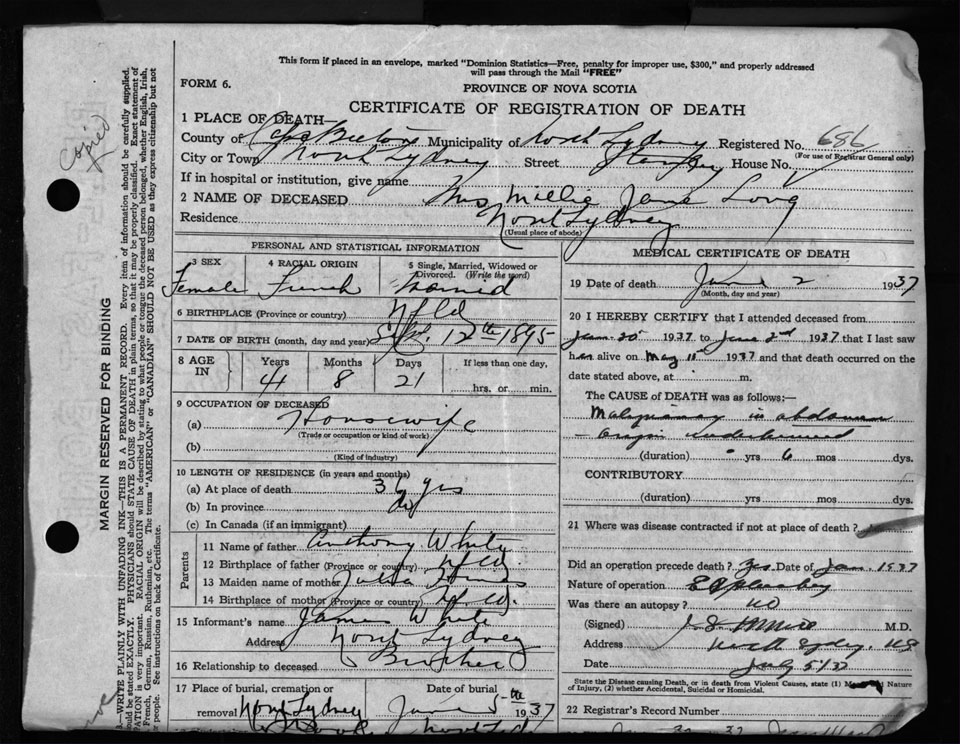 This form if placed in an envelope, marked "Dominion Statistics—Free, penalty for improper use, $300," and properly addressed
will pass through the Mail "FREE"
FORM 6.
PROVINCE OF NOVA SCOTIA
CERTIFICATE OF REGISTRATION OF DEATH
Copied
MARGIN RESERVED FOR BINDING
—WRITE PLAINLY WITH UNFADING INK—THIS IS A PERMANENT RECORD. Every item of information should be carefully supplied.
should be stated EXACTLY. PHYSICIANS should STATE CAUSE OF DEATH in plain terms, so that it may be properly classified. Exact statement of
is very important. RACIAL ORIGIN will be described by stating to what people or tongue the deceased person belonged, whether English, Irish,
French, German, Russian, Ruthenian, etc. The terms "AMERICAN" or "CANADIAN" SHOULD NOT BE USED as they express citizenship but not
people. See instructions on back of Certificate.
1 PLACE OF DEATH—
County of Cape Breton Municipality of North Sydney Registered No. 686
(For use of Registrar General only)
City or Town North Sydney Street House No.
If in hospital or institution, give name
2 NAME OF DECEASED Mrs Millie Jane Long
Residence North Sydney
(Usual place of abode)
PERSONAL AND STATISTICAL INFORMATION
3 SEX 4 RACIAL ORIGIN 5 Single, Married, Widowed or
Divorced. (Write the word)
Female French Married
6 BIRTHPLACE (Province or country) Nfld
7 DATE OF BIRTH (month, day and year) Sept. 12th 1895
8 AGE IN Years Months Days If less than one day,
41 8 21 hrs. or min.
9 OCCUPATION OF DECEASED
(a) Housewife
(Trade or occupation or kind of work)
(b)
(Kind of industry)
10 LENGTH OF RESIDENCE (in years and months)
(a) At place of death 36 yrs
(b) In province do
(c) In Canada (if an immigrant)
Parents
11 Name of father Anthony White
12 Birthplace of father (Province or country) Nfld.
13 Maiden name of mother Julia
14 Birthplace of mother (Province or country) Nfld.
15 Informant's name James White
Address North Sydney
16 Relationship to deceased Brother
17 Place of burial, cremation or
removal North Sydney
Date of burial
June 5th 1937
MEDICAL CERTIFICATE OF DEATH
19 Date of death June 2 1937
(Month, day and year)
20 I HEREBY CERTIFY that I attended deceased from
Jan. 20 1937 to June 2nd 1937 that I last saw
her alive on May 11 1937 and that death occurred on the
date stated above, at m.
The CAUSE of DEATH was as follows:—
Malignancy in abdomen
– origin undetermined
(duration) yrs 6 mos dys.
CONTRIBUTORY
(duration) yrs mos dys.
21 Where was disease contracted if not at place of death?
Did an operation precede death? Yes. Date of Jan 1937
Nature of operation Exploratory
Was there an autopsy? no
(Signed) M.D.
Address North Sydney. NS
Date July 5/37
State the Disease causing Death, or in death from Violent Causes, state (1) Means and Nature
of Injury, (2) whether Accidental, Suicidal or Homicidal.
22 Registrar's Record Number